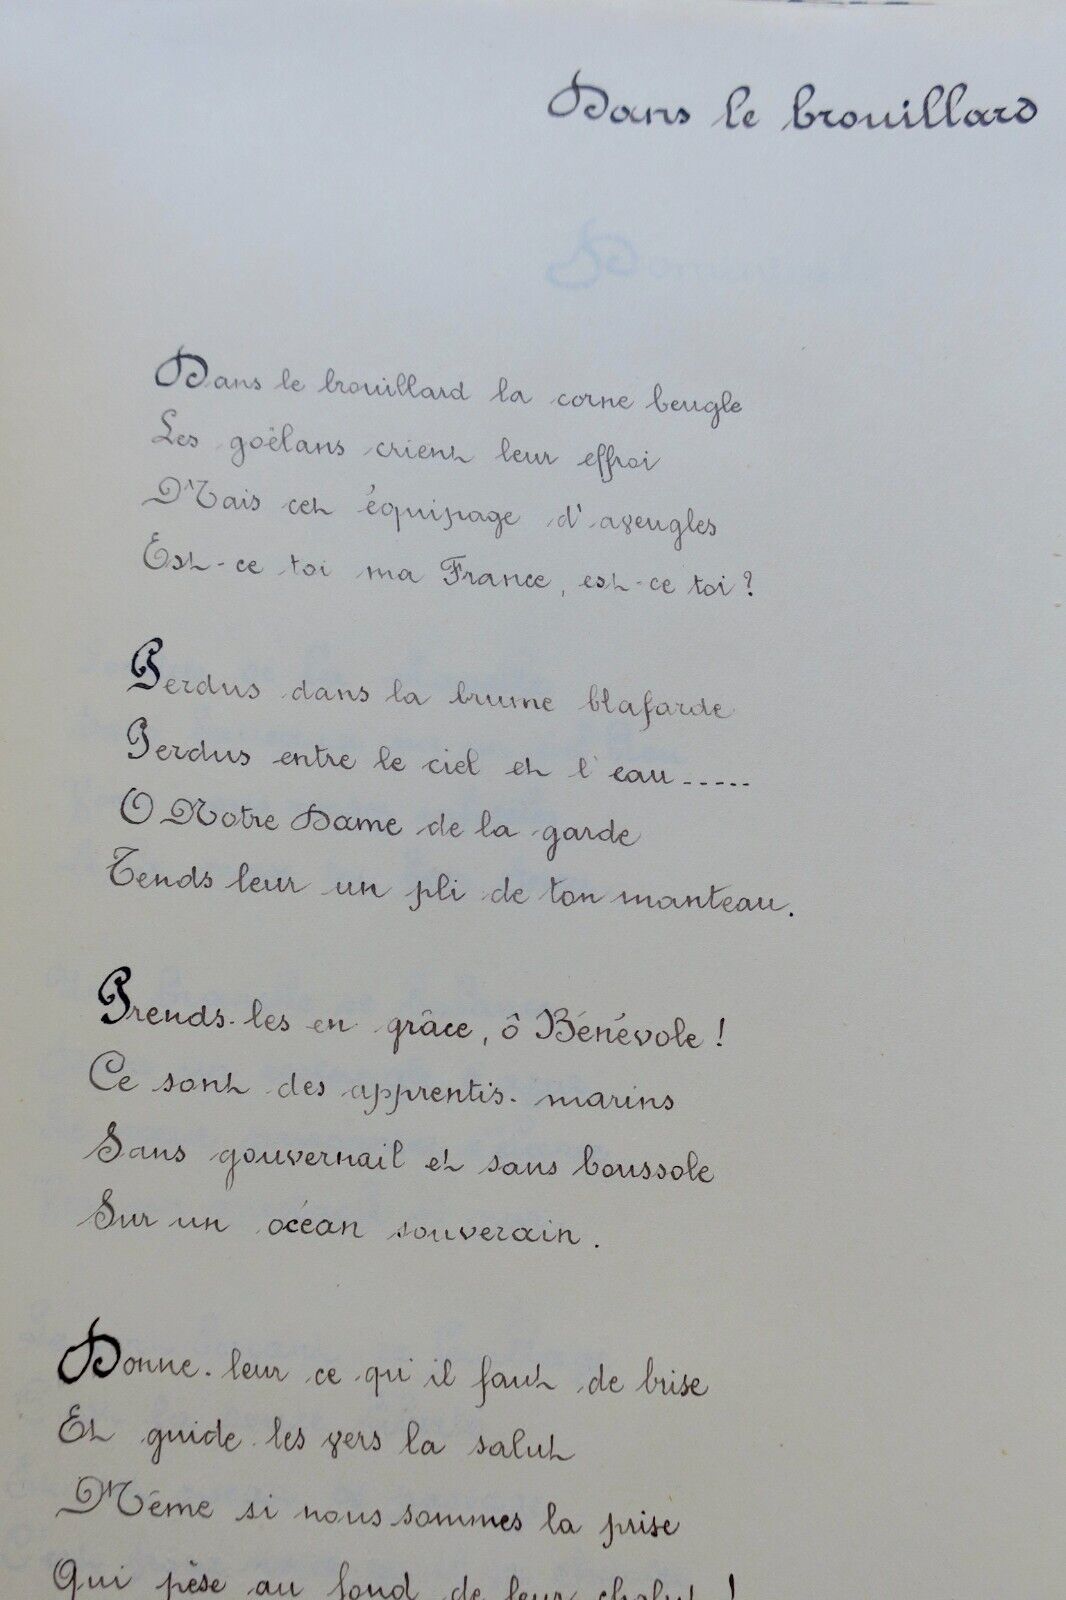 Dans le brouillard
Dans le brouillard la corne beugle
Les goëlans crient leur effroi
Mais cet équipage d'aveugles
Est-ce toi ma France, est-ce toi ?
Perdus dans la brume blafarde
Perdus entre le ciel et l'eau.....
O Notre Dame de la garde
Tends leur un pli de ton manteau.
Prends-les en grâce, ô Bénévole !
Ce sont des apprentis-marins
Sans gouvernail et sans boussole
Sur un océan souverain.
Donne-leur ce qu'il faut de brise
Et guide-les vers la salut
Même si nous sommes la prise
Qui pèse au fond de leur chalut !